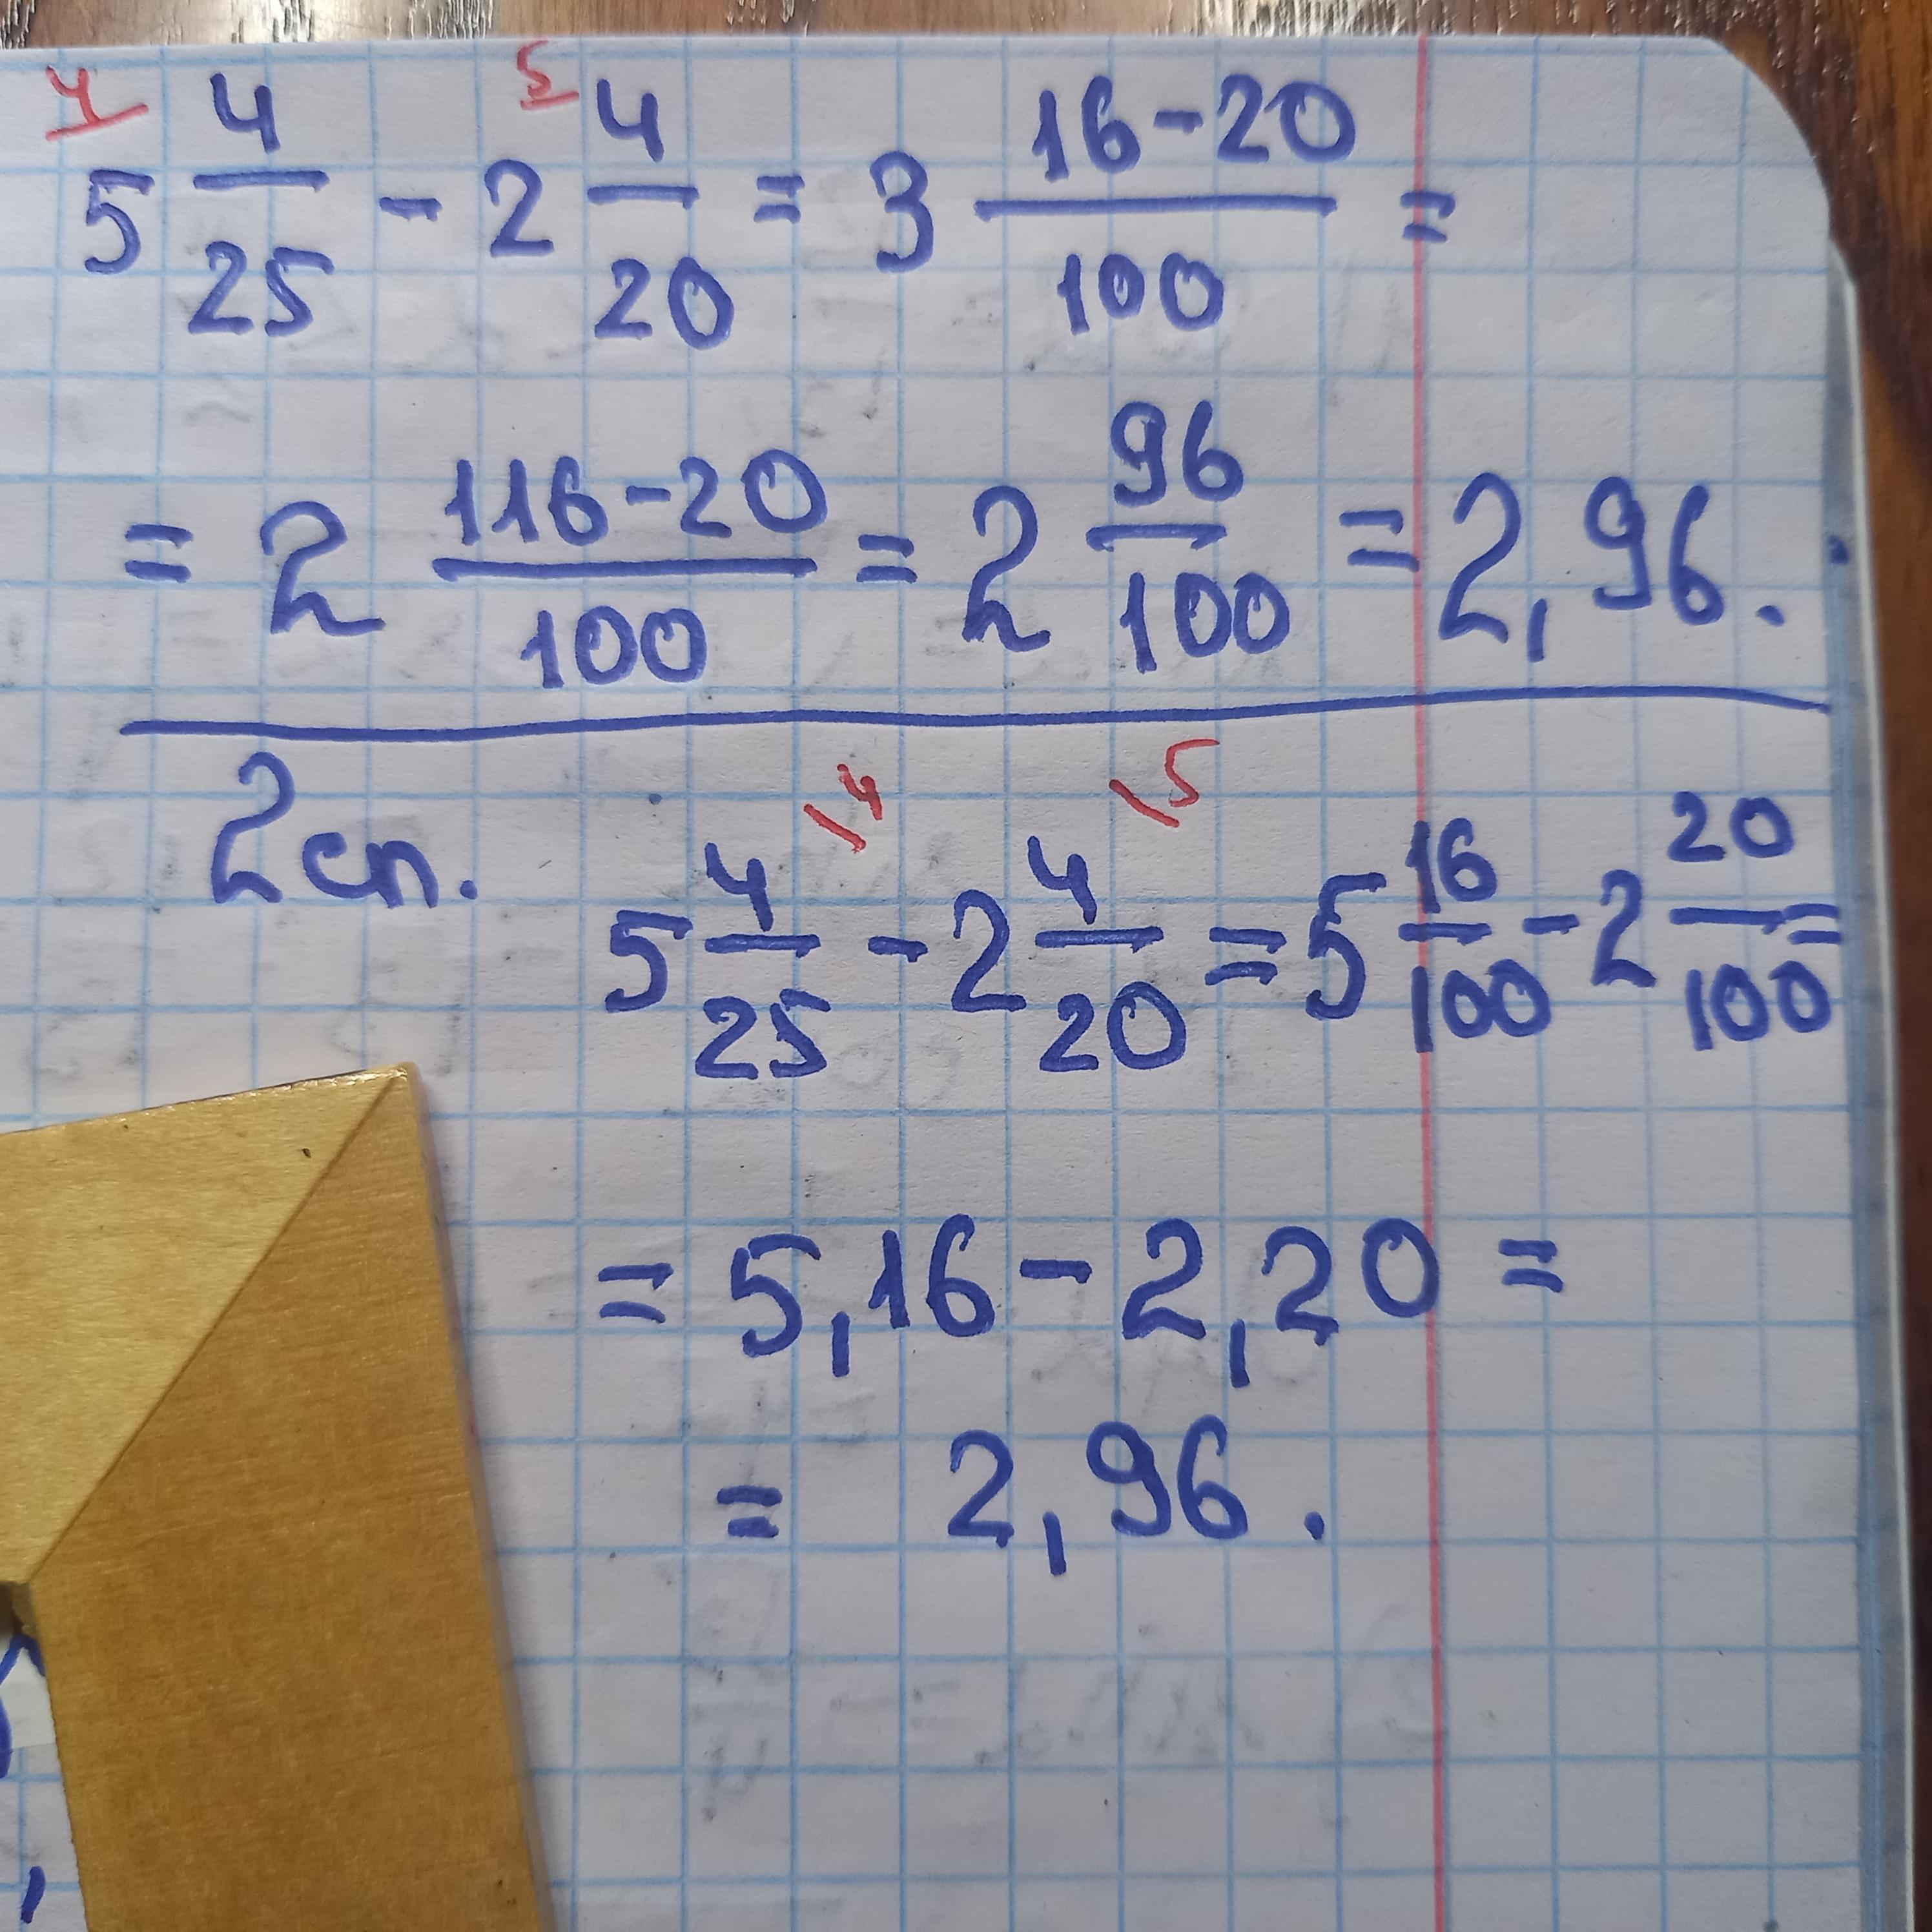 4 5
5 4/25 - 2 4/20 = 3 16-20/100 =
= 2 116-20/100 = 2 96/100 = 2,96.
2 сп.
4 5
5 4/25 - 2 4/20 = 5 16/100 - 2 20/100 =
= 5,16 - 2,20 =
= 2,96.